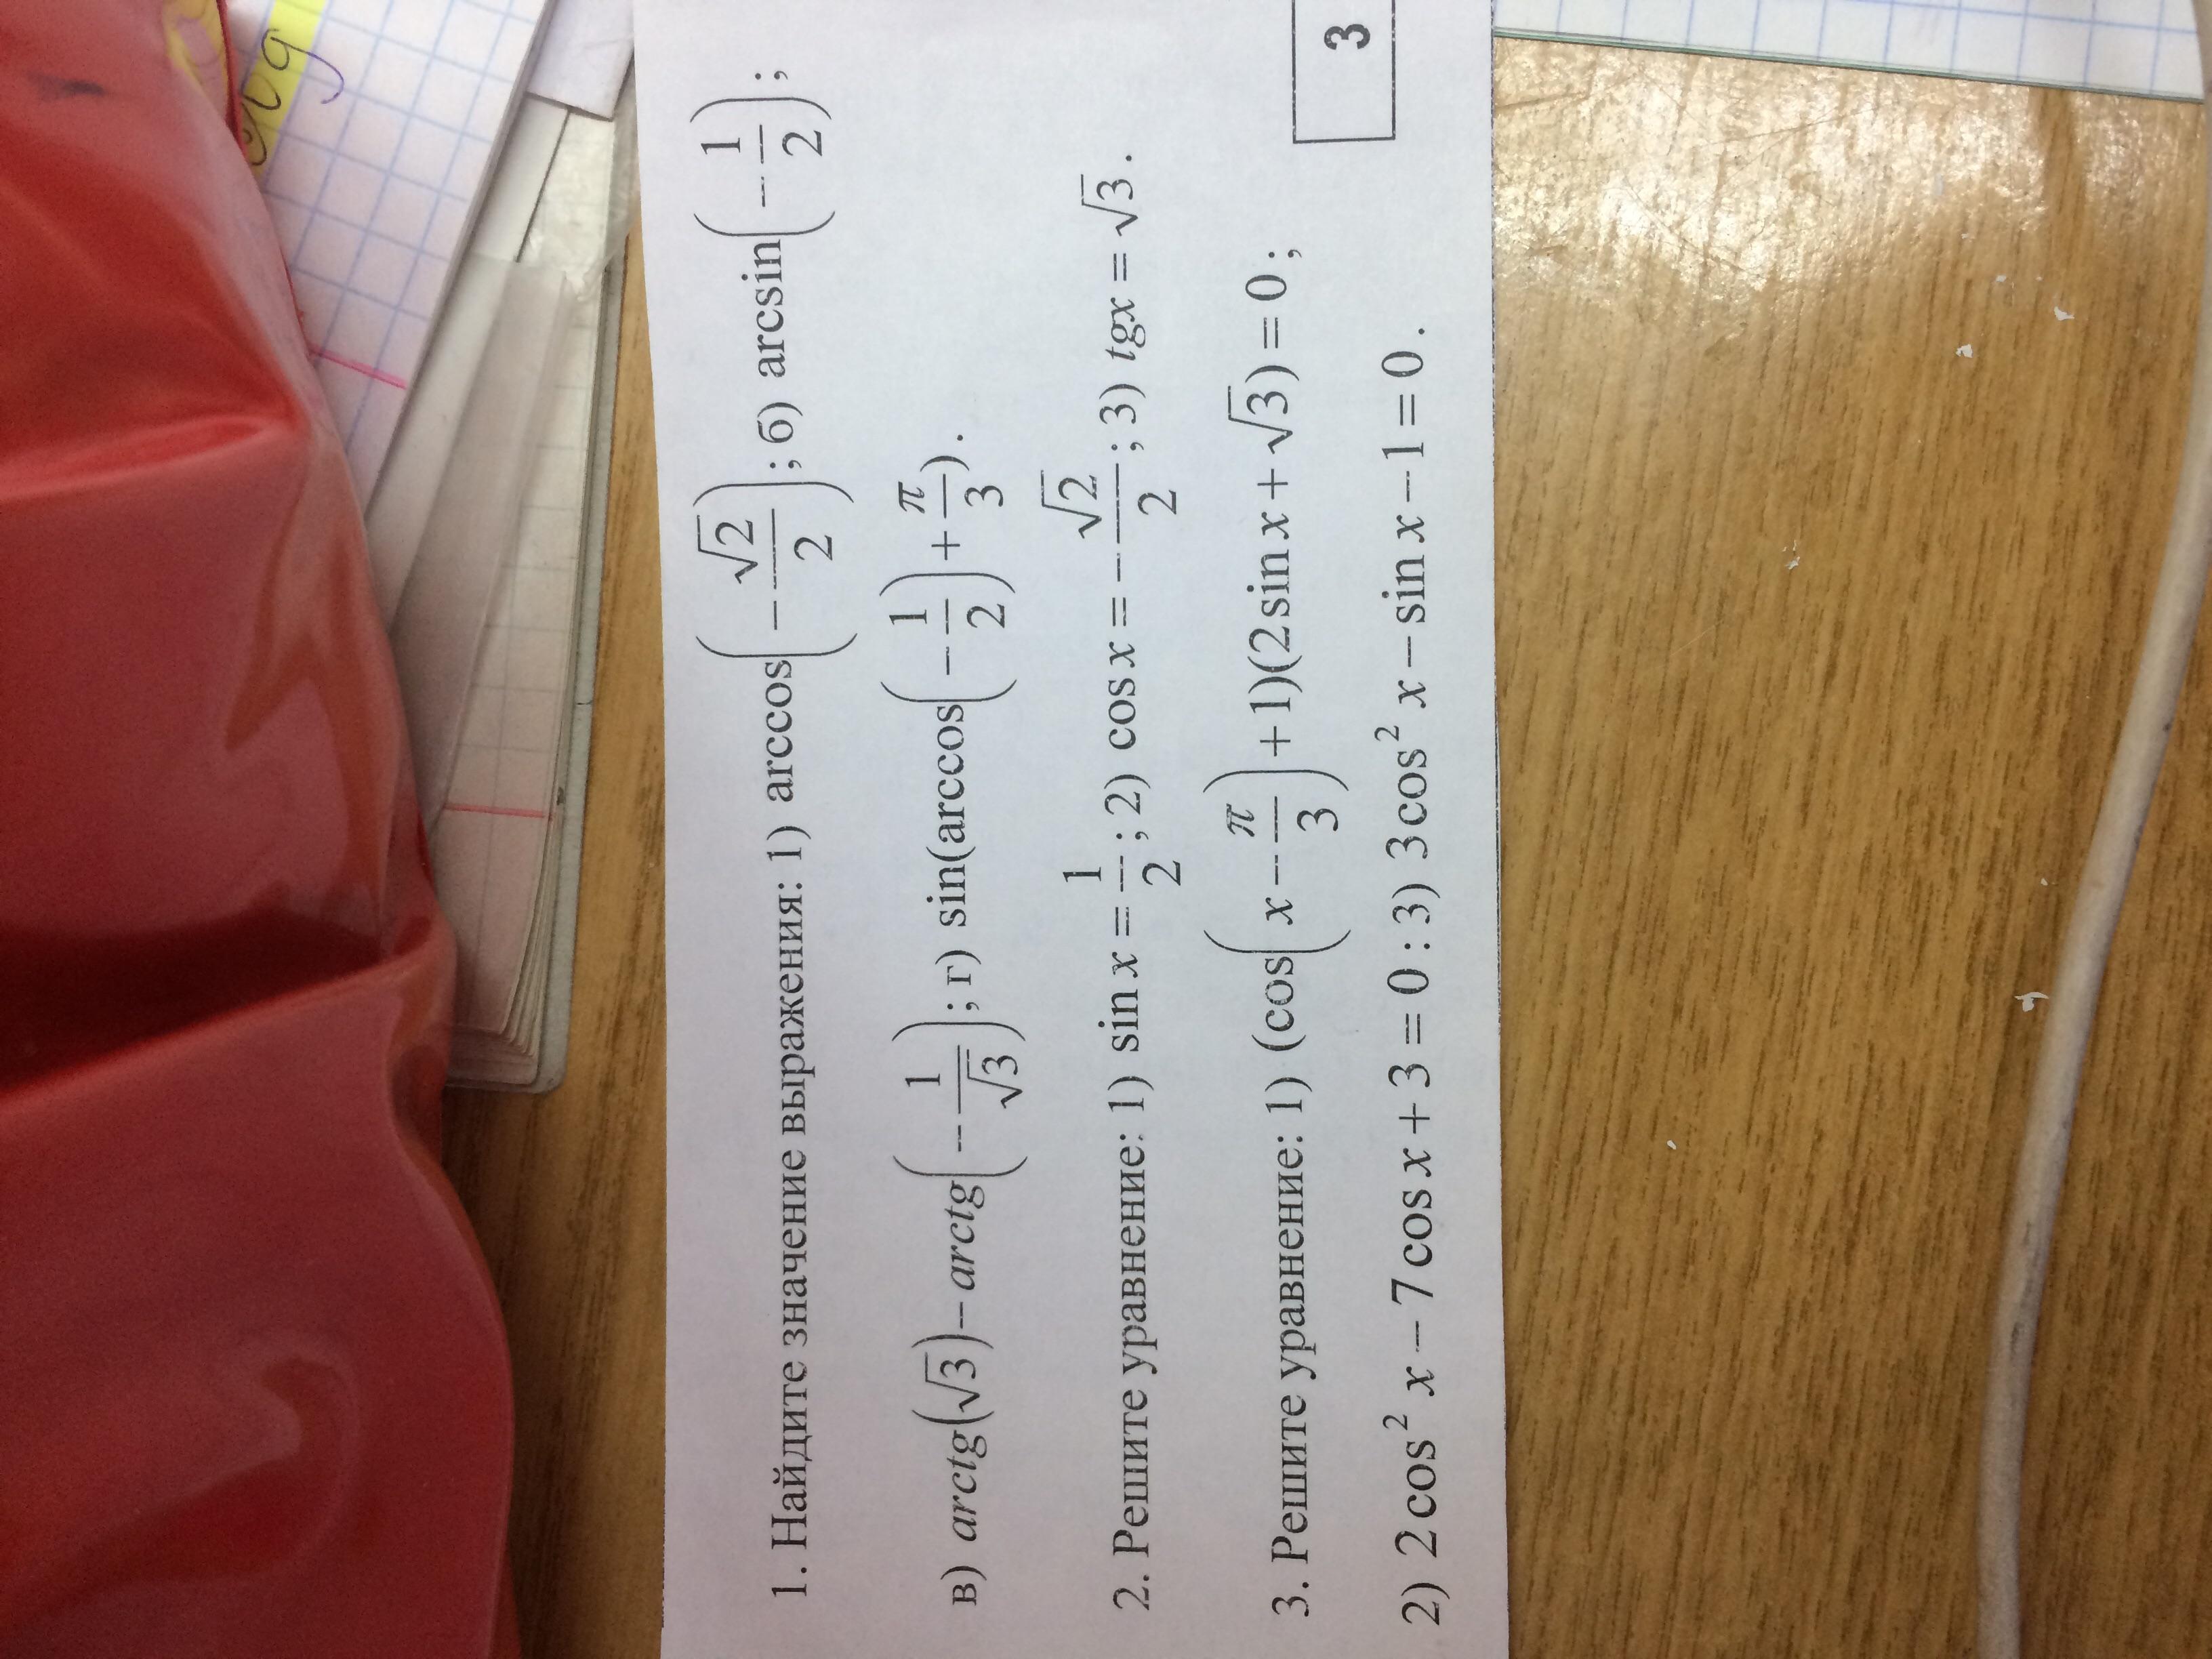 1. Найдите значение выражения: 1) arccos(-√2/2); б) arcsin(-1/2);
в) arctg(√3)-arctg(-1/√3); г) sin(arccos(-1/2)+π/3).
2. Решите уравнение: 1) sin x = 1/2; 2) cos x = -√2/2; 3) tgx = √3.
3. Решите уравнение: 1) (cos(x-π/3)+1)(2sin x+√3) = 0;
2) 2cos² x - 7cos x + 3 = 0 : 3) 3cos² x - sin x - 1 = 0.
3